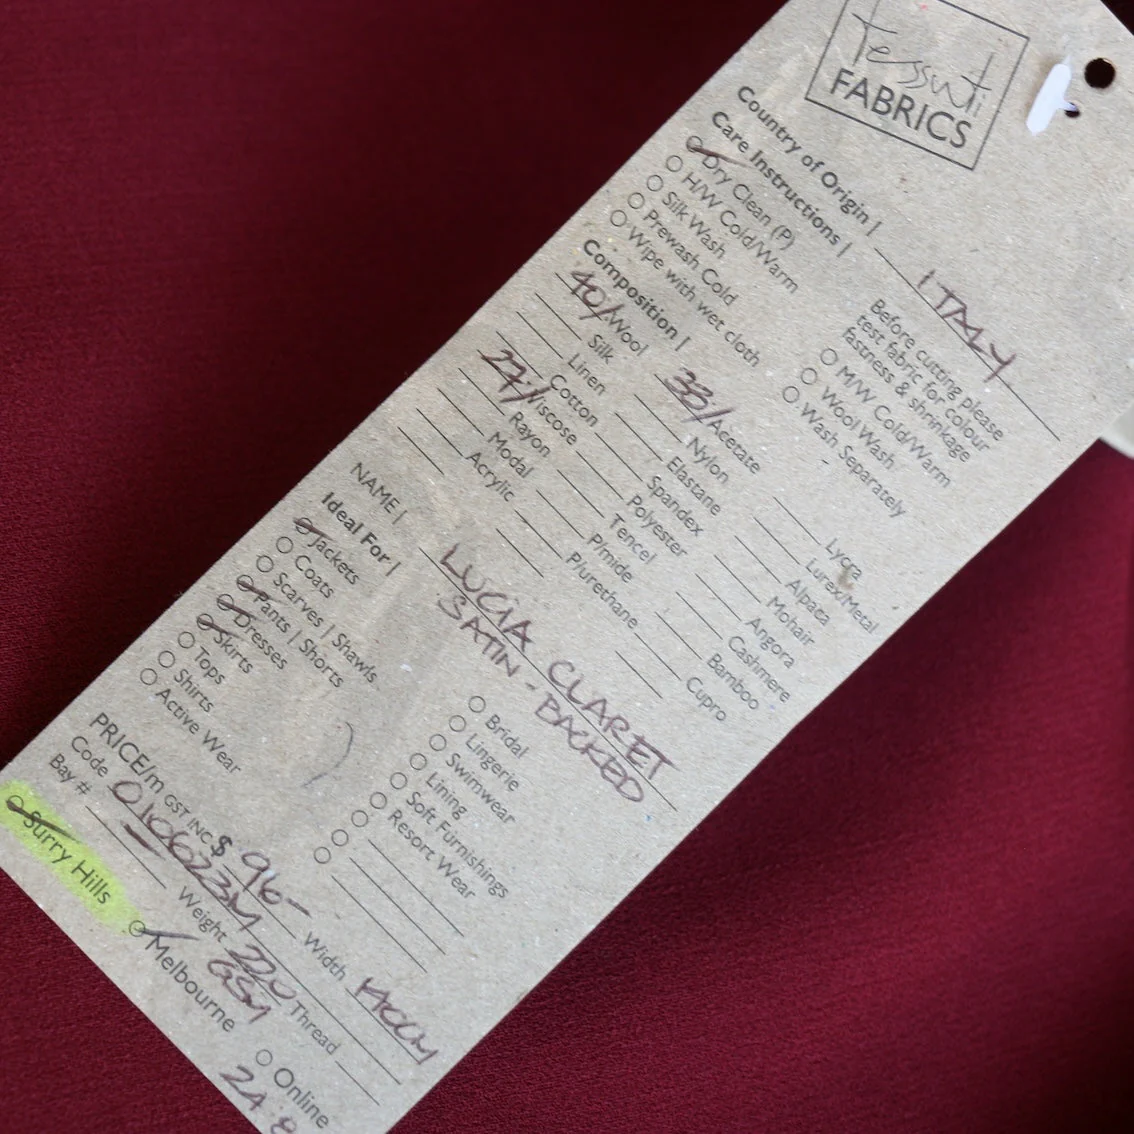 Tessuti
FABRICS
Country of Origin | ITALY
Care Instructions |
Dry Clean (P)
H/W Cold/Warm
Silk Wash
Prewash Cold
Wipe with wet cloth
Before cutting please
test fabric for colour
fastness & shrinkage
M/W Cold/Warm
Wool Wash
Wash Separately
Composition |
40/. Wool
Silk
Linen
Cotton
27/. Viscose
Rayon
Modal
Acrylic
33/. Acetate
Nylon
Elastane
Spandex
Polyester
Tencel
P/mide
P/urethane
Lycra
Lurex/Metal
Alpaca
Mohair
Angora
Cashmere
Bamboo
Cupro
NAME | LUCIA CLARET
SATIN-BACKED
Ideal For |
Jackets
Coats
Scarves | Shawls
Pants | Shorts
Dresses
Skirts
Tops
Shirts
Active Wear
Bridal
Lingerie
Swimwear
Lining
Soft Furnishings
Resort Wear
PRICE/m GST INC $ 96- Width 140CM
Code 010623M Weight 220 Thread
GSM
Bay #
Surry Hills Melbourne Online
24.8